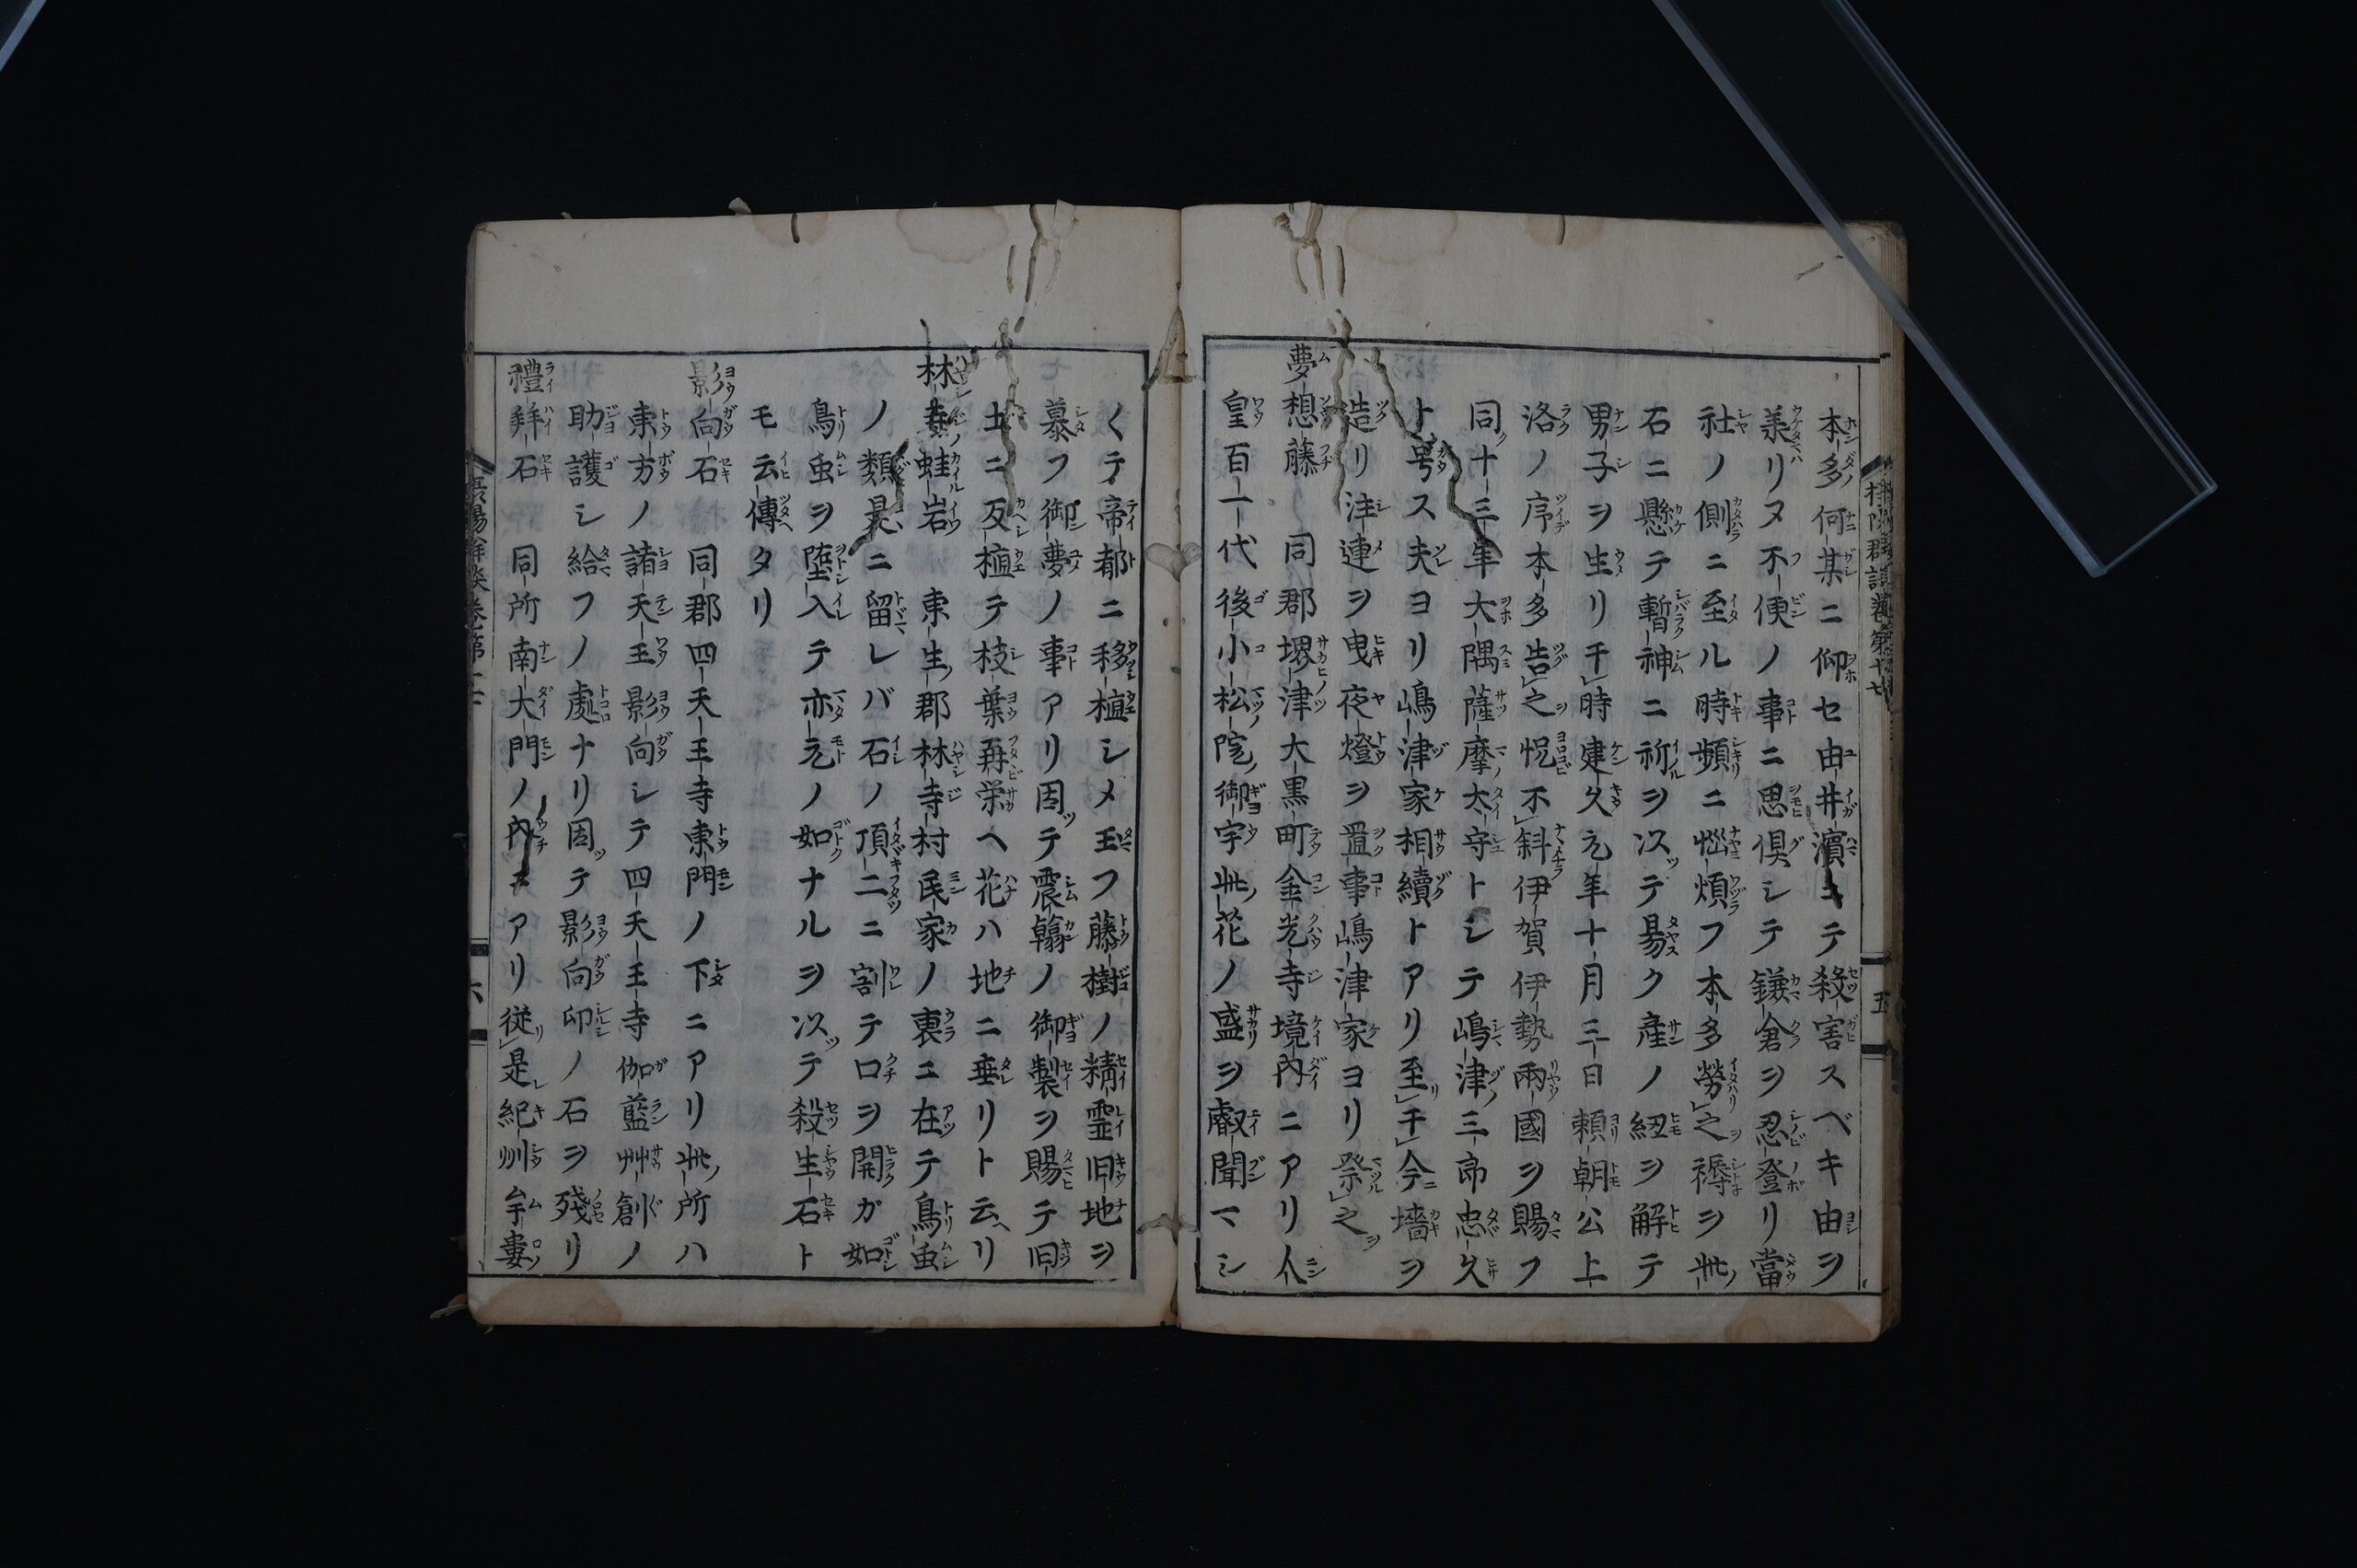 本多何某ニ仰セ由井濱ニテ殺害スベキ由ヲ
羕リヌ不便ノ事ニ思俱シテ鎌倉ヲ忍登リ當
社ノ側ニ至ル時頻ニ惱煩フ本多勞之褥ヲ此
石ニ懸テ暫神ニ祈ヲ以テ易ク產ノ紐ヲ解テ
男子ヲ生リ于時建久元年十月三日頼朝公上
洛ノ序本多告之悦不斜伊賀伊勢兩國ヲ賜フ
同十三年大隅薩摩大守トシテ嶋津三郎忠久
ト号ス夫ヨリ嶋津家相續トアリ至于今墻ヲ
造リ注連ヲ曳夜燈ヲ置事嶋津家ヨリ祭之
夢想藤 同郡堺津大黒町金光寺境內ニアリ人
皇百一代後小松院御宇此花ノ盛ヲ叡聞マシ
くテ帝都ニ移植シメ玉フ藤樹ノ精霊旧地ヲ
慕フ御夢ノ事アリ因テ震翰ノ御製ヲ賜テ旧
土ニ反植テ枝葉再栄ヘ花ハ地ニ垂リト云リ
林 蛙岩 東生郡林寺村民家ノ裏ニ在テ鳥虫
ノ類是ニ留レバ石ノ頂二ニ割テ口ヲ開ガ如
鳥虫ヲ堕入テ亦元ノ如ナルヲ以テ殺生石ト
モ云傳タリ
影向石 同郡四天王寺東門ノ下ニアリ此所ハ
東方ノ諸天王影向シテ四天王寺伽藍艸創ノ
助護シ給フノ處ナリ因テ影向印ノ石ヲ殘リ
禮拜石 同所南大門ノ內ニアリ従是紀州牟婁
五
六